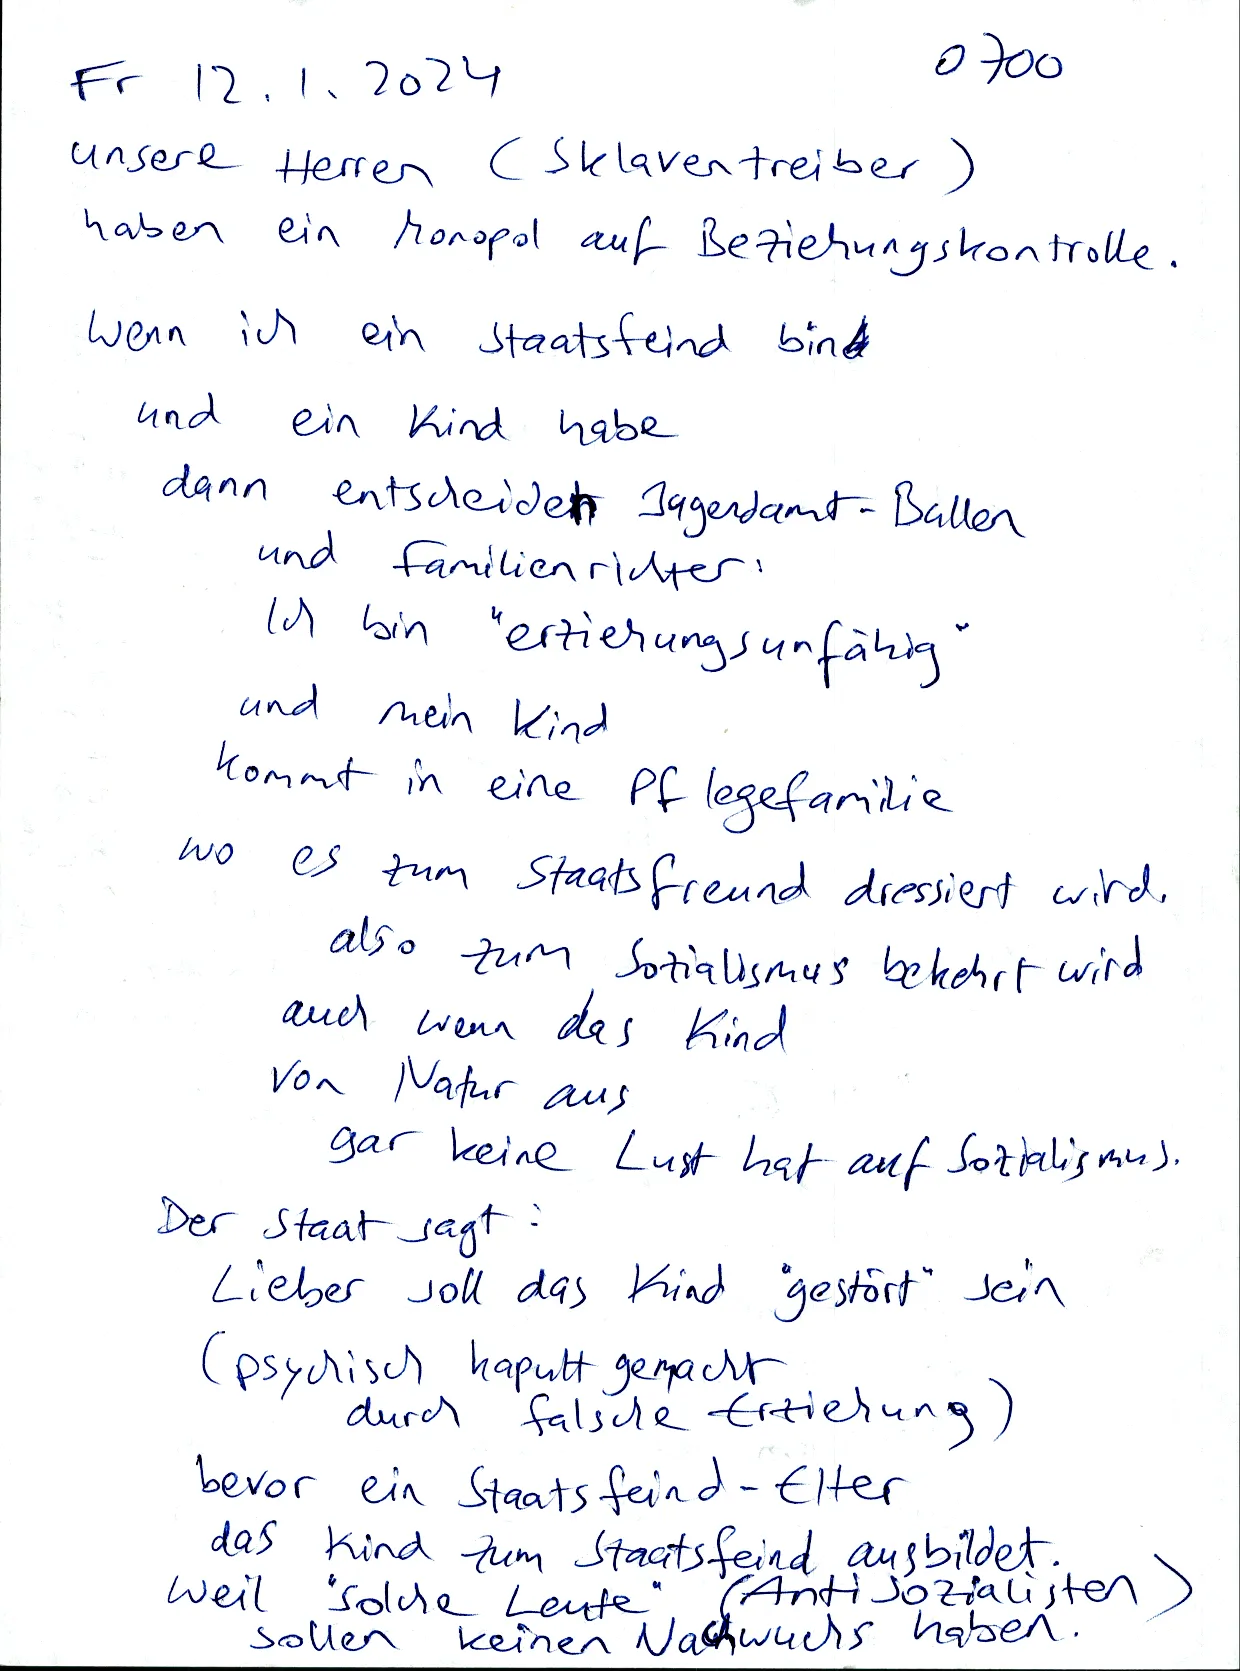 Fr 12.1.2024 0700
unsere Herren (Sklaventreiber)
haben ein Monopol auf Beziehungskontrolle.
Wenn ich ein Staatsfeind bin
und ein Kind habe
dann entscheiden Jugendamt-Bullen
und Familienrichter:
Ich bin "erziehungsunfähig"
und mein Kind
kommt in eine Pflegefamilie
wo es zum Staatsfreund dressiert wird.
also zum Sozialismus bekehrt wird
auch wenn das Kind
von Natur aus
gar keine Lust hat auf Sozialismus.
Der Staat sagt:
Lieber soll das Kind "gestört" sein
(psychisch kaputt gemacht
durch falsche Erziehung)
bevor ein Staatsfeind-Elter
das Kind zum Staatsfeind ausbildet.
weil "solche Leute" (Antisozialisten)
sollen keinen Nachwuchs haben.